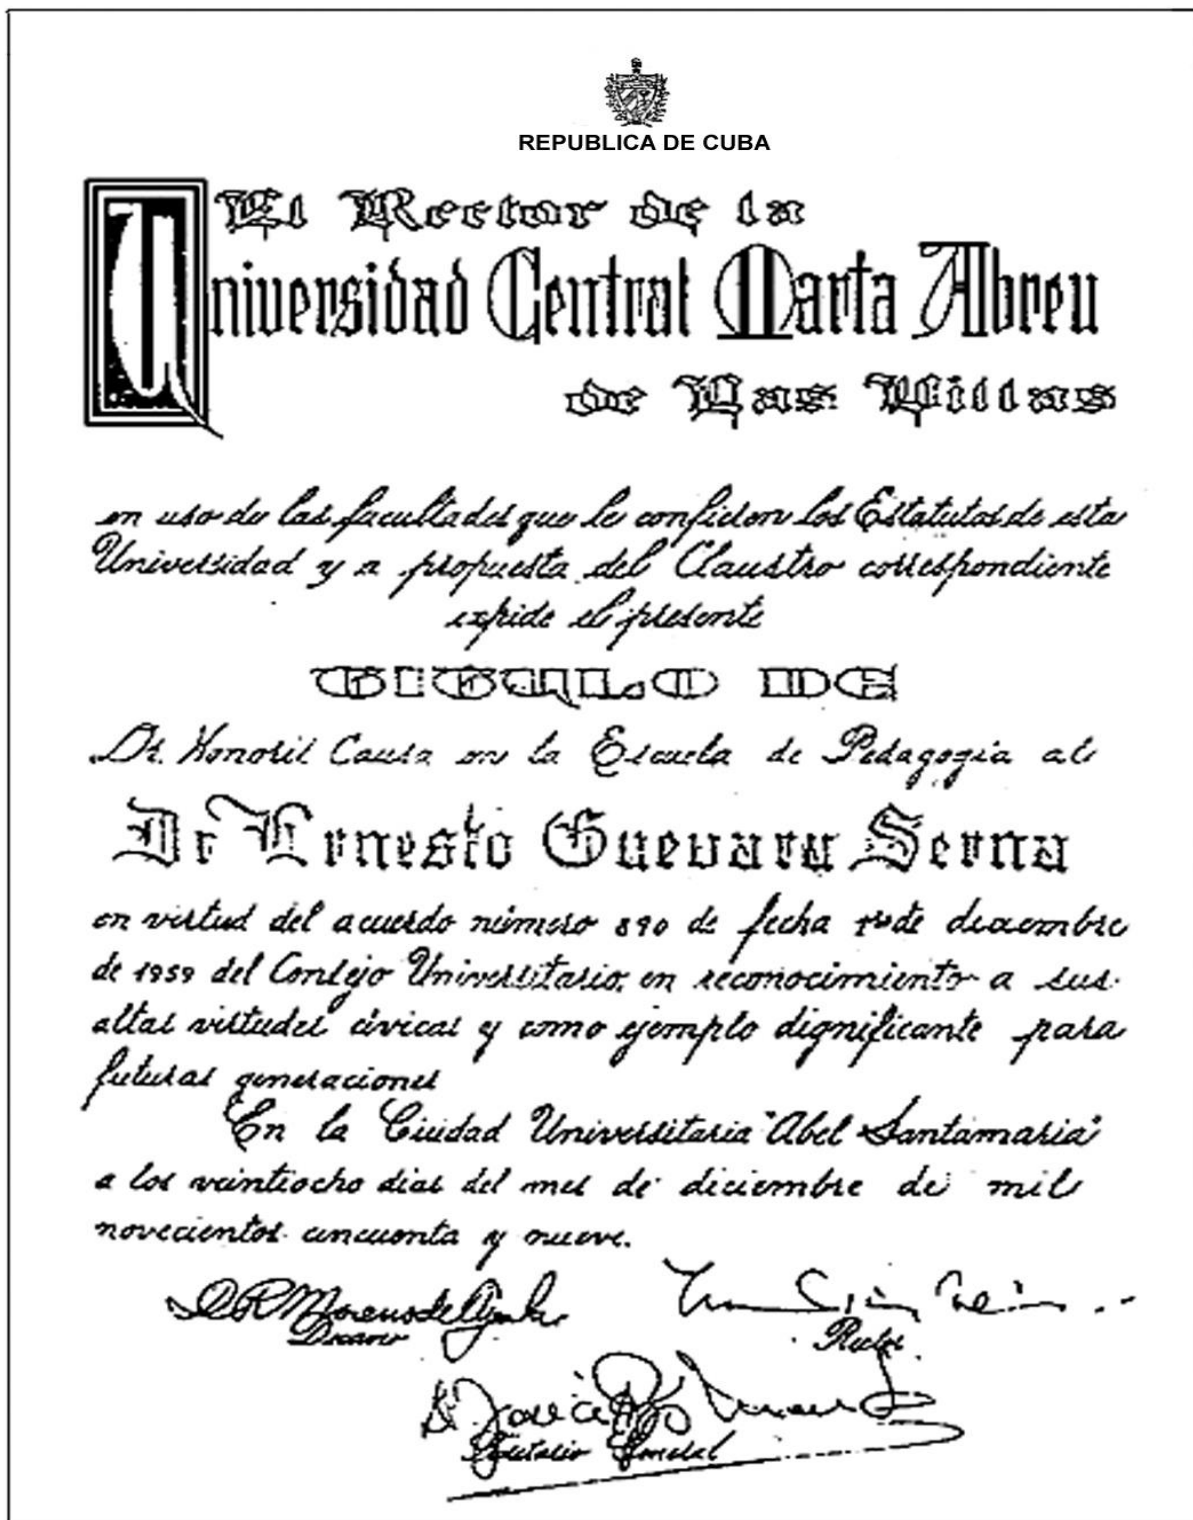 REPUBLICA DE CUBA
El Rector de la
Universidad Central Marta Abreu
de Las Villas
en uso de las facultades que le confieren los Estatutos de esta
Universidad y a propuesta del Claustro correspondiente
expide el presente
TITULO DE
Dr. Honoris Causa en la Escuela de Pedagogía al
Dr Ernesto Guevara Serna
en virtud del acuerdo número 890 de fecha 1ro de diciembre
de 1959 del Consejo Universitario, en reconocimiento a sus
altas virtudes cívicas y como ejemplo dignificante para
futuras generaciones
En la Ciudad Universitaria "Abel Santamaria"
a los veintiocho dias del mes de diciembre de mil
novecientos cincuenta y nueve.
Decano
Rector
Secretario General